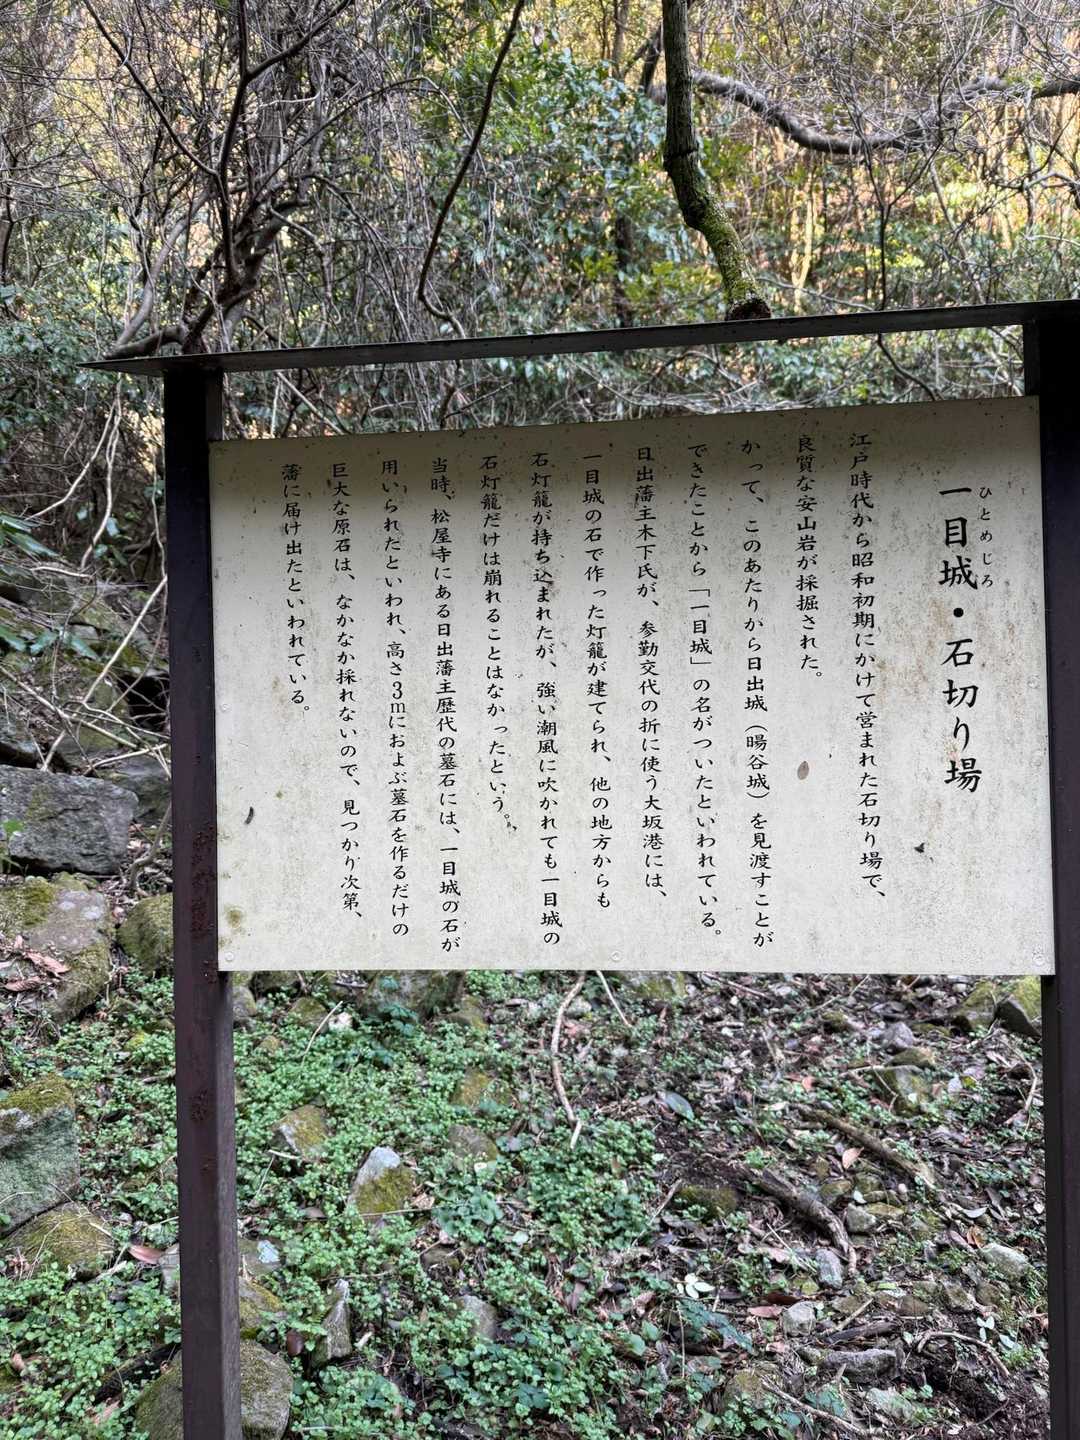 一目城・石切り場
ひとめじろ
江戸時代から昭和初期にかけて営まれた石切り場で、
良質な安山岩が採掘された。
かって、このあたりから日出城（暘谷城）を見渡すことが
できたことから「一目城」の名がついたといわれている。
日出藩主木下氏が、参勤交代の折に使う大坂港には、
一目城の石で作った灯籠が建てられ、他の地方からも
石灯籠が持ち込まれたが、強い潮風に吹かれても一目城の
石灯籠だけは崩れることはなかったという。
当時、松屋寺にある日出藩主歴代の墓石には、一目城の石が
用いられたといわれ、高さ3mにおよぶ墓石を作るだけの
巨大な原石は、なかなか採れないので、見つかり次第、
藩に届け出たといわれている。